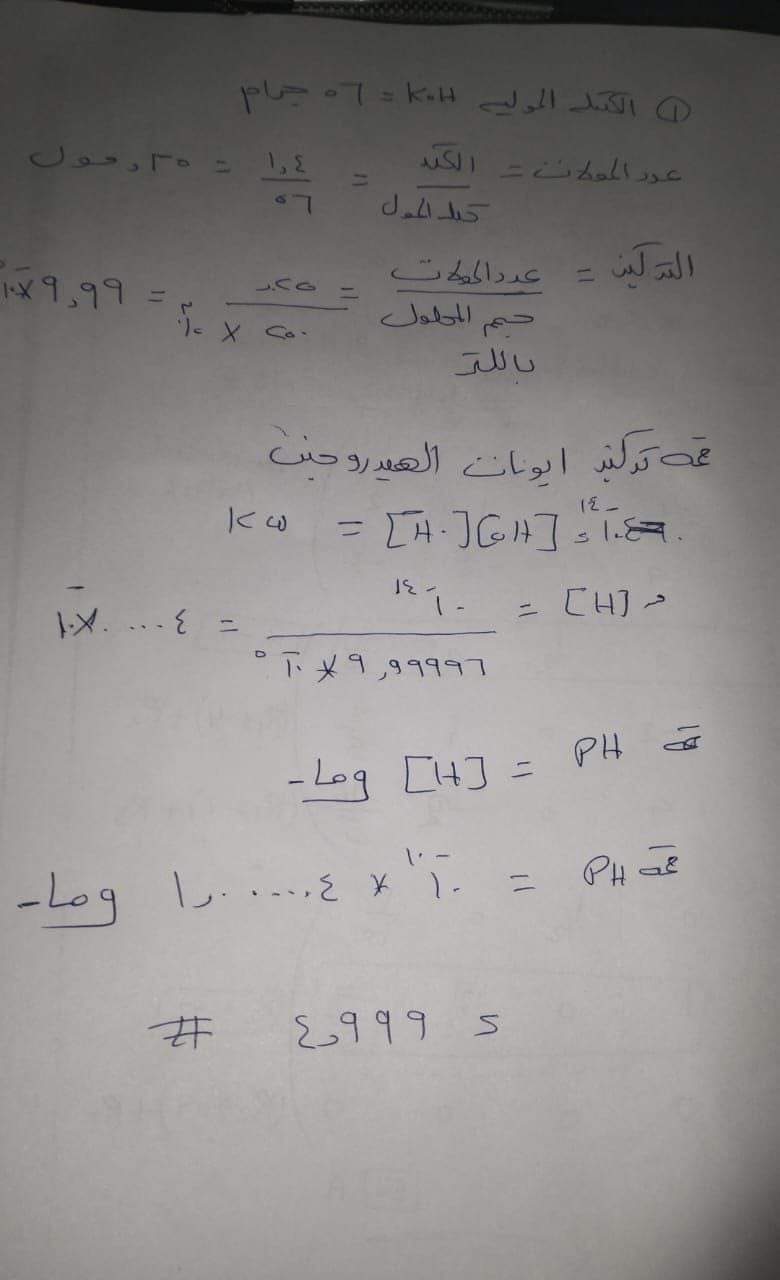 ① الكتلة المولية KOH = ٥٦ جرام
عدد المولات = الكتلة / كتلة المول = ١,٤ / ٥٦ = ٠٢٥ر مول
التركيز = عدد المولات / حجم المحلول باللتر = ٠٢٥ر / ٢٥٠ × ١٠ = ٩,٩٩×١٠
تركيز ايونات الهيدروجين
Kw = [H][OH] = ١٠-١٤
[H] = ١٠-١٤ / ٩,٩٩٩٩٦ × ١٠-٥ =
PH = [H] لو-
PH = لو- ١٠-١٠ ×
= ٤,٩٩٩ #